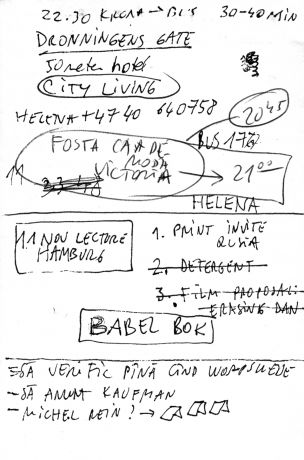 22.30 → BUS 30-40 MIN
DRONNINGENS GATE
50 meter hotel
CITY LIVING
HELENA +47 40 640758
2045
BUS 172
FOSTA CASA DE
MODA
VICTORIA → 21 00
11
HELENA
11 NOV LECTURE
HAMBURG
1. PRINT INVITE
RUSIA
2. DETERGENT
3. FILM PROPOSAL:
ERASING DAN
BABEL BOK
- SĂ VERIFIC PÎNĂ CÎND WORPSWEDE
- SĂ ANUNT KAUFMAN
- MICHEL REIN ? →